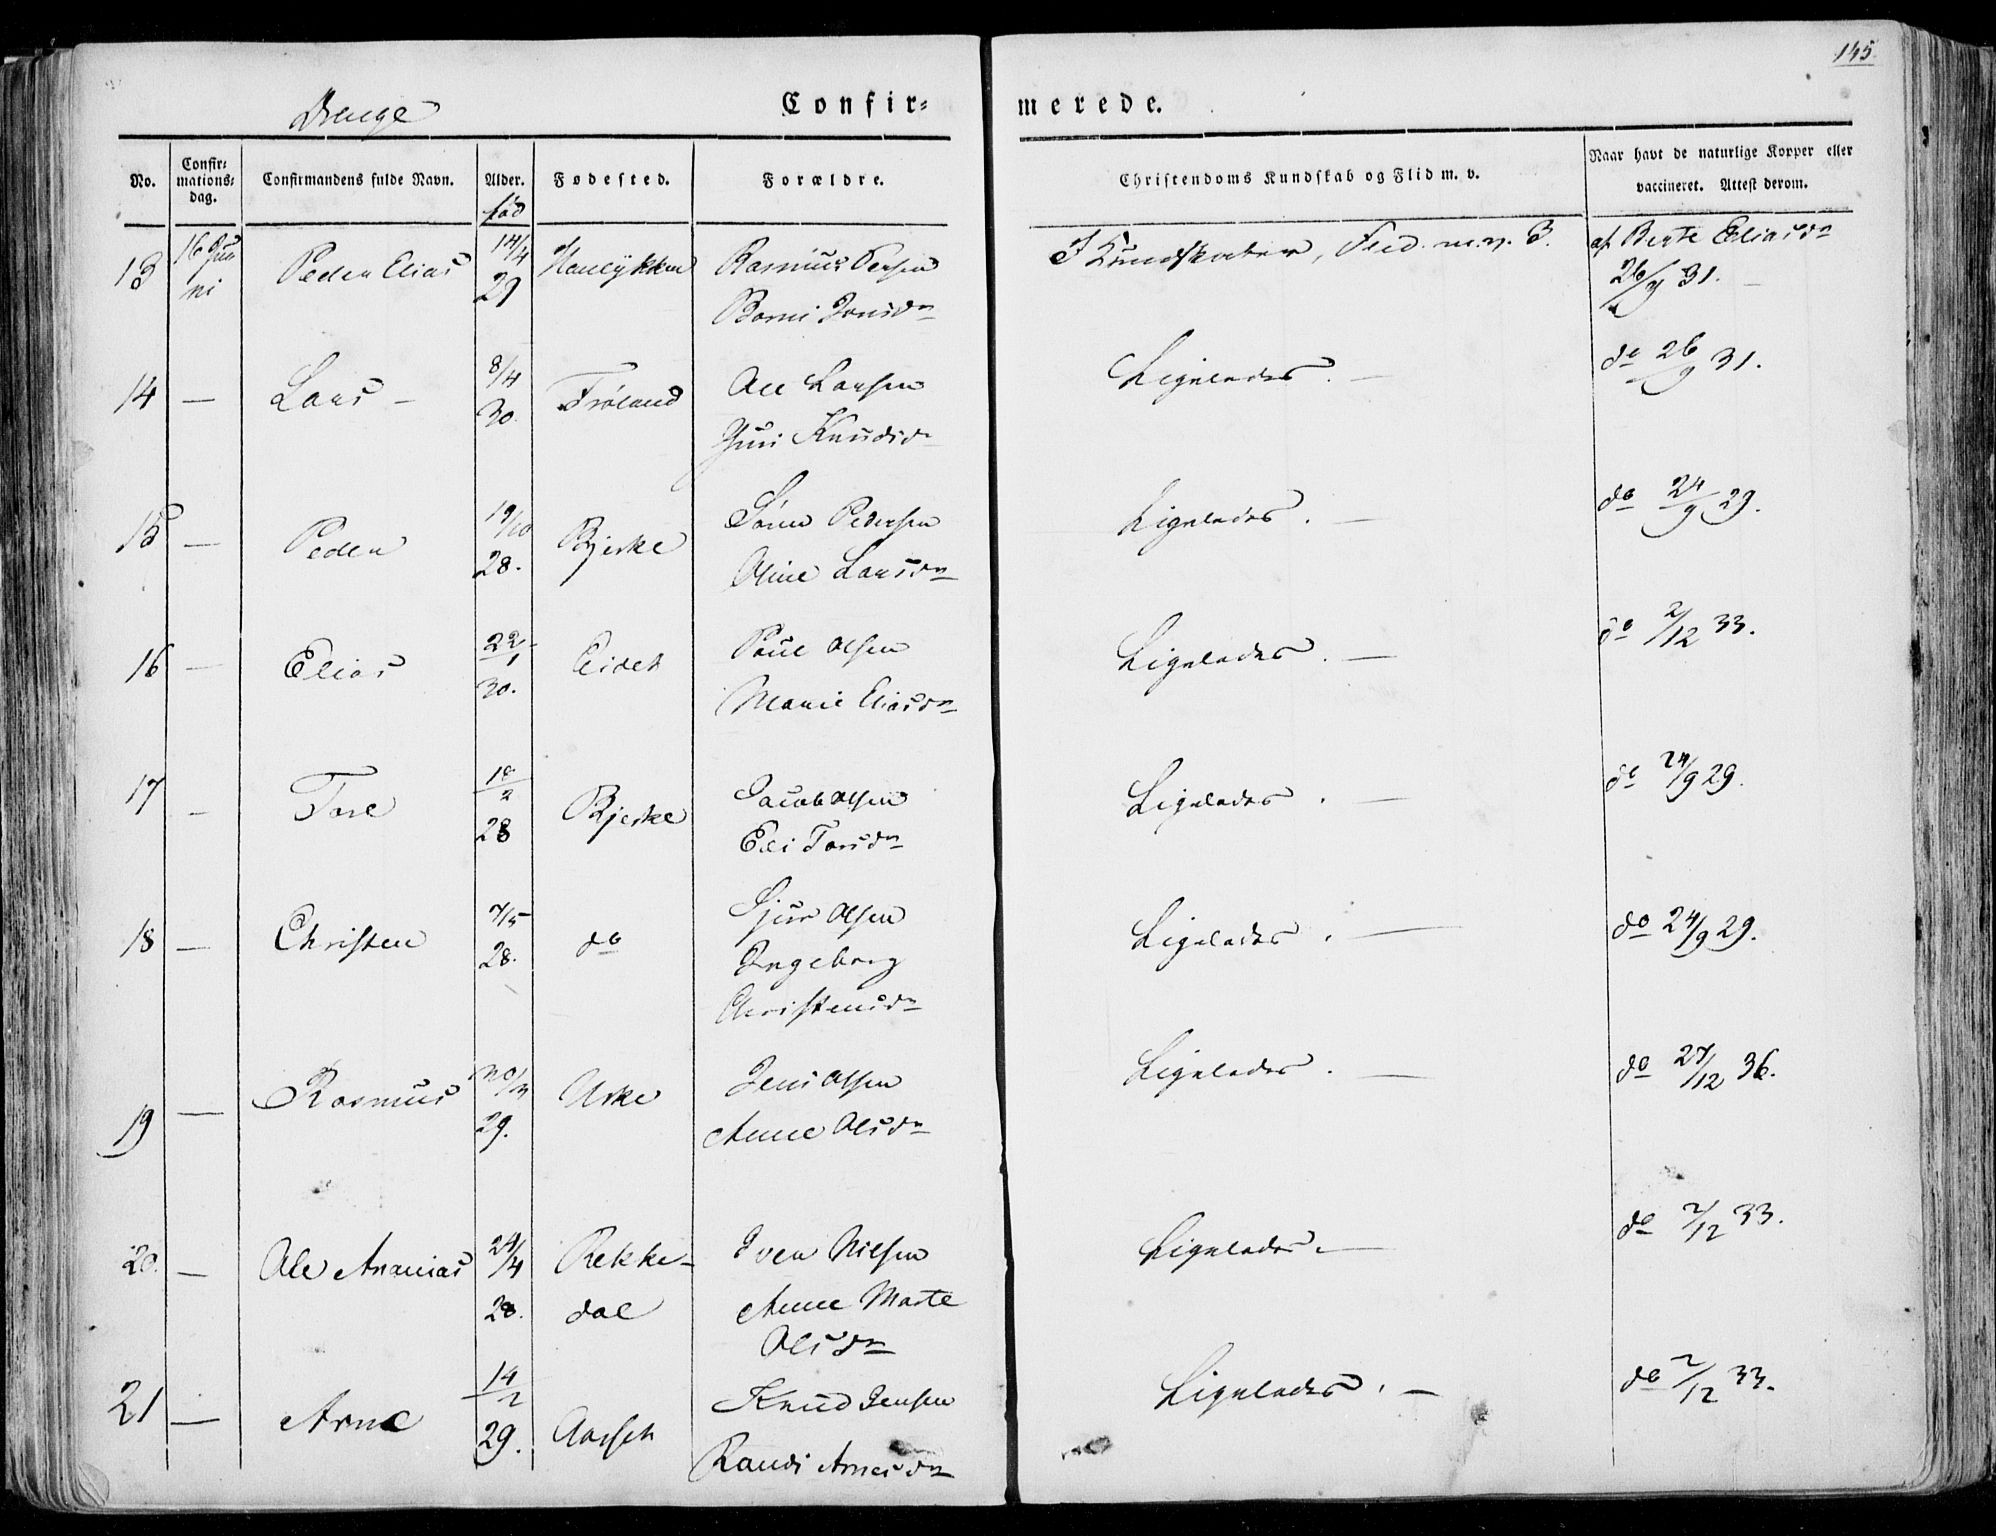 145.
Drenge Confir= merede.
No. Confir= mations= dag. Confirmandens fulde Navn. Alder. Fødested. Forældre. Christendoms Kundskab og Flid m. v. Naar havt de naturlige Kopper eller vaccineret. Attest derom.
fød
13 16 Juni Peder Elias 14/4 29 Rasmus Persen I Kundskaber, Flid m.v. 3. af Berte Eliasdr
26/9 31.
14 — Lars — 8/4 30. Frøland Ole Larsen Ligeledes. — do 26/9 31.
Guri Knudsdr
15 — Peder 19/10 28. Bjerke Pedersen Ligeledes. — do 24/9 29.
Oline Larsdr
16 — Elias 22/1 30. Eidet Poul Olsen Ligeledes. — do 2/12 33.
Marie Eliasdr
17 — Tore 18/2 28 Bjerke Jacob Olsen Ligeledes. — do 24/9 29.
Eli Torsdr
18 — Christen 7/5 28. do Sjur Olsen Ligeledes. — do 24/9 29.
Ingeborg
Christensdr
19 — Rasmus 20/3 29. Aske Jens Olsen Ligeledes. — do 27/12 36.
Anne Olsdr
20. — Ole Ananias 24/4 28. Rekke- Iver Nilsen Ligeledes. — do 2/12 33.
dal Anne Marte
Olsdr
21 — Arne 14/2 29. Aarset Knud Jensen Ligeledes. — do 2/12 33.
Randi Arnesdr